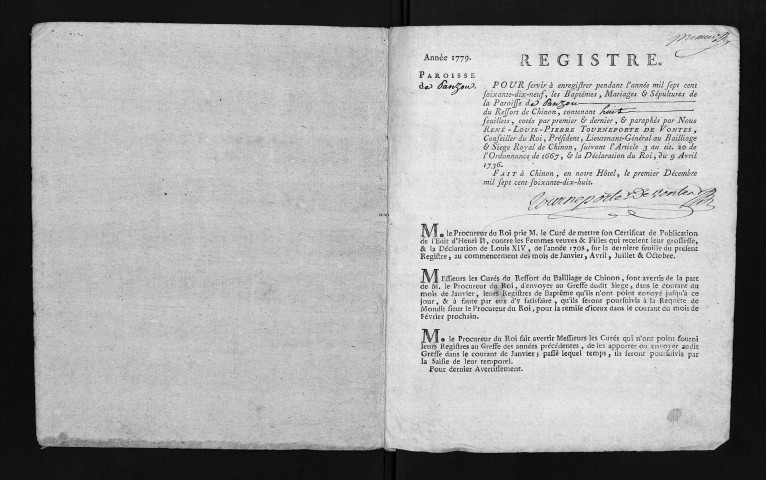 premier
Année 1779.
REGISTRE.
PAROISSE
de Panzou.
POUR servir à enregistrer pendant l'année mil sept cent
soixante-dix-neuf, les Baptêmes, Mariages & Sépultures de
la Paroisse de Panzou
du Ressort de Chinon, contenant huit
feuillets, cotés par premier & dernier, & paraphés par Nous
RENÉ-LOUIS-PIERRE TOURNEPORTE DE VONTES,
Conseiller du Roi, Président, Lieutenant-Général au Bailliage
& Siege Royal de Chinon, suivant l'Article 3 au tit. 20 de
l'Ordonnance de 1667, & la Déclaration du Roi, du 9 Avril
1736.
FAIT à Chinon, en notre Hôtel, le premier Décembre
mil sept cent soixante-dix-huit.
Tourneporte de vontes
M. le Procureur du Roi prie M. le Curé de mettre son Certificat de Publication
de l'Edit d'Henri II, contre les Femmes veuves & Filles qui recelent leur grossesse,
& la Déclaration de Louis XIV, de l'année 1708, sur la derniere feuille du present
Registre, au commencement des mois de Janvier, Avril, Juillet & Octobre.
MEssieurs les Curés du Ressort du Bailliage de Chinon, sont avertis de la part
de M. le Procureur du Roi, d'envoyer au Greffe dudit Siege, dans le courant du
mois de Janvier, leurs Registres de Baptême qu'ils n'ont point envoyé jusqu'à ce
jour, & à faute par eux d'y satisfaire, qu'ils seront poursuivis à la Requête de
Mondit sieur le Procureur du Roi, pour la remise d'iceux dans le courant du mois de
Février prochain.
M. le Procureur du Roi fait avertir Messieurs les Curés qui n'ont point fourni
leurs Registres au Greffe des années précédentes, de les apporter ou envoyer audit
Greffe dans le courant de Janvier; passé lequel temps, ils seront poursuivis par
la Saisie de leur temporel.
Pour dernier Avertissement.